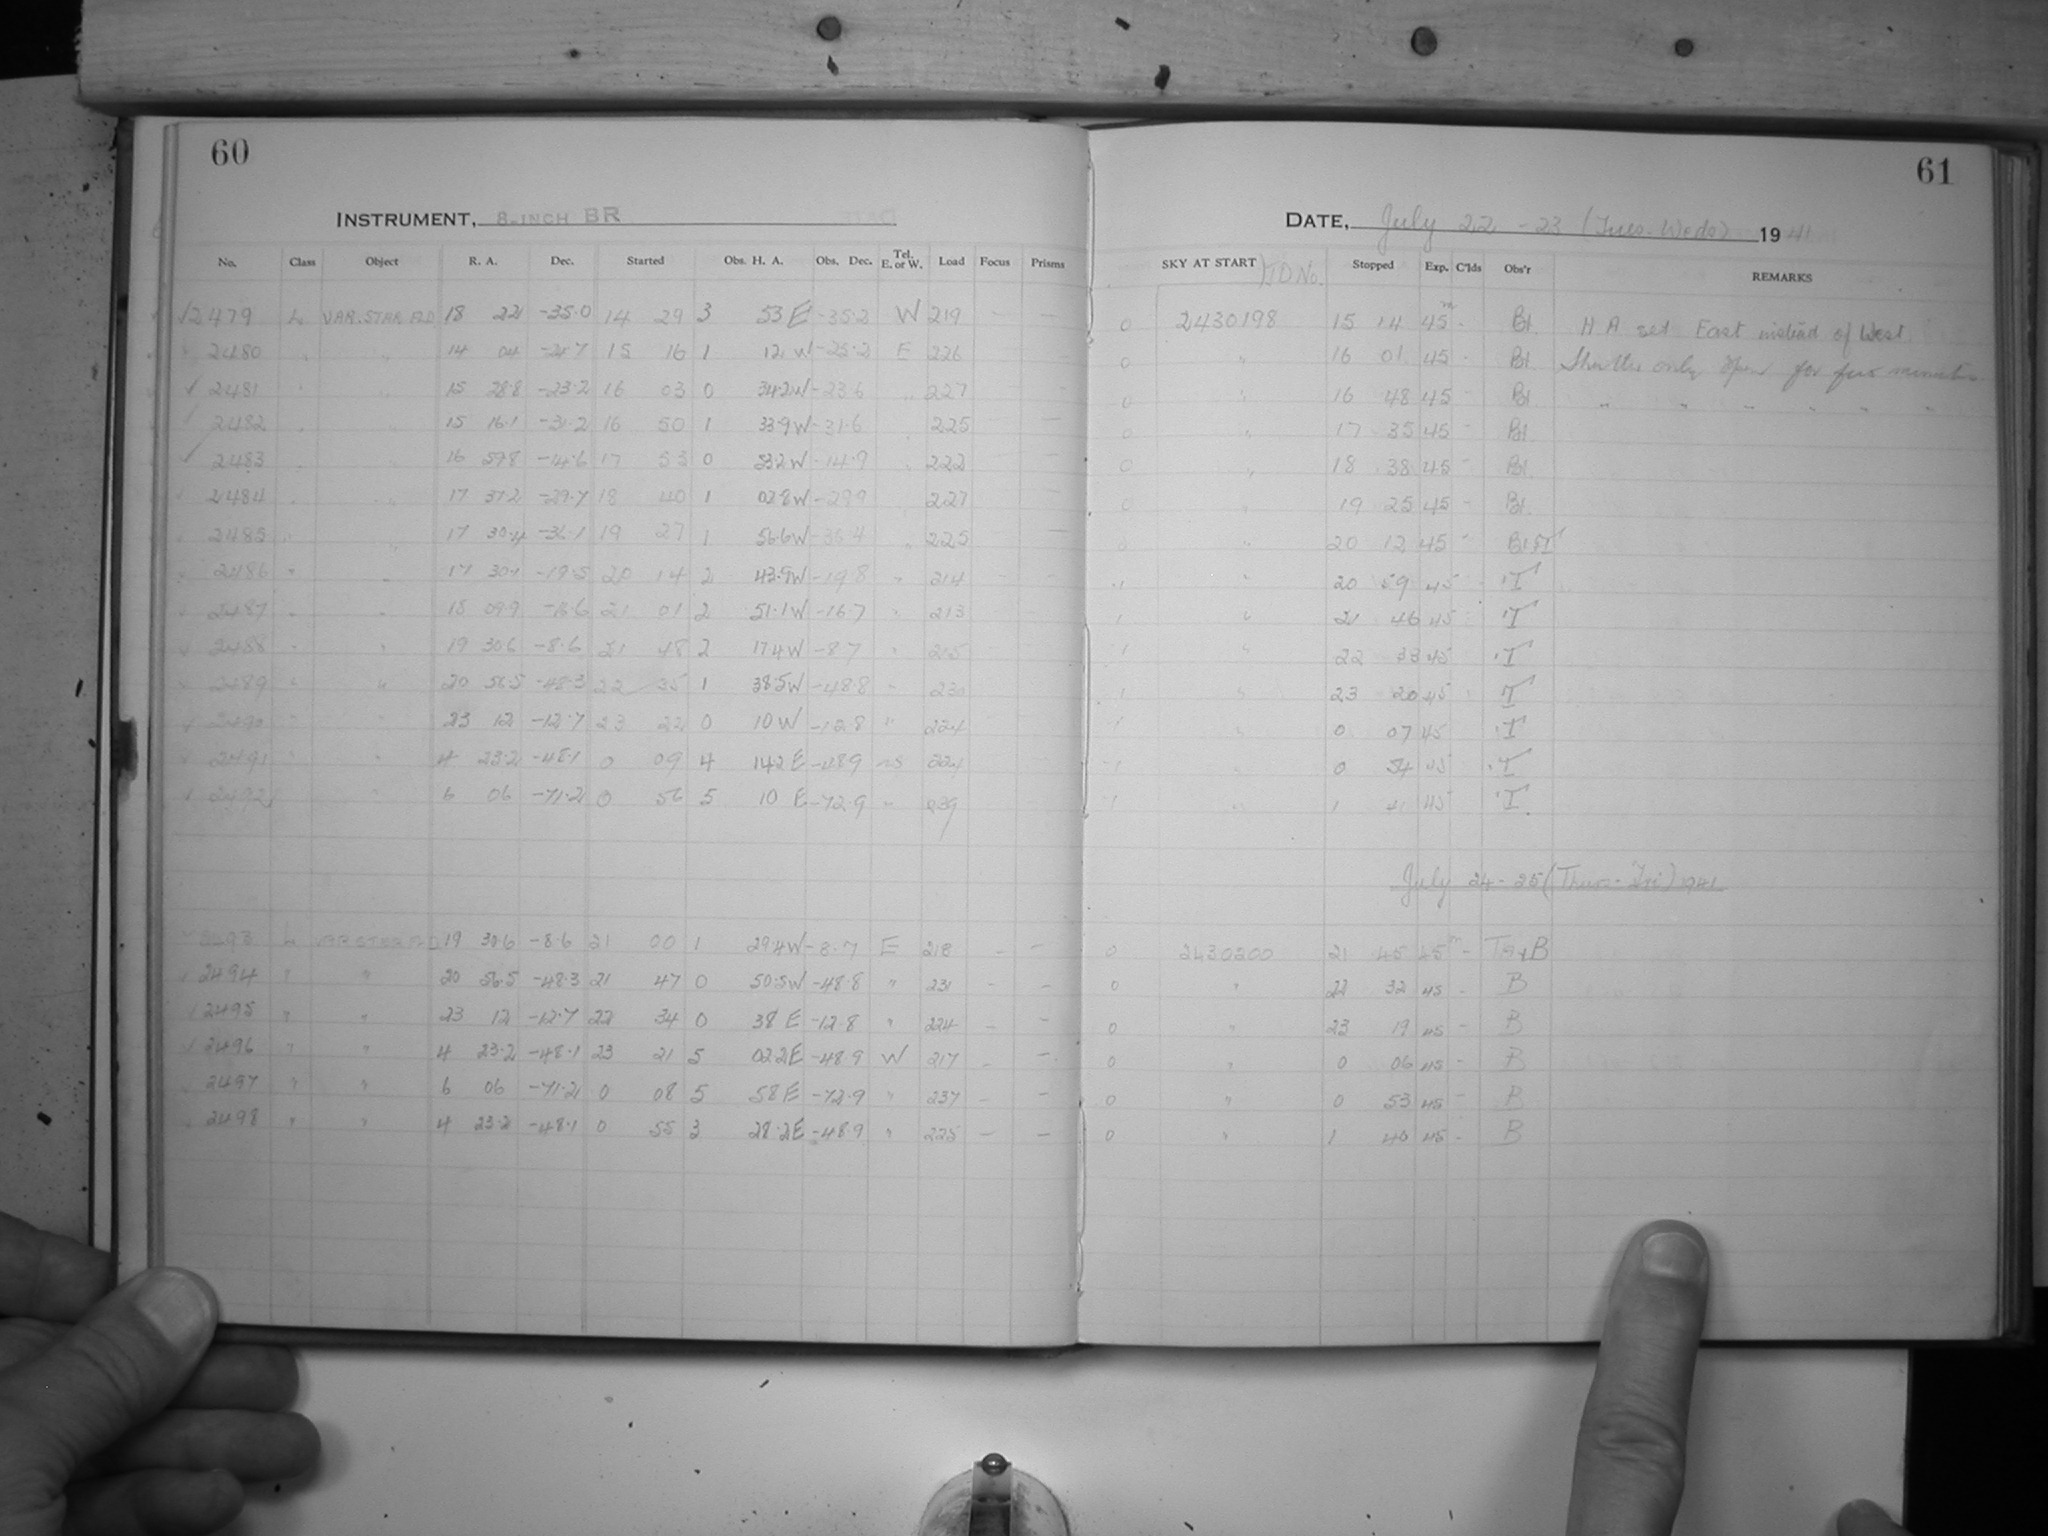 60
INSTRUMENT, 8-INCH BR
No. Class Object R. A. Dec. Started Obs. H. A. Obs. Dec. Tel. E. or W. Load Focus Prisms
√2479 L VAR. STAR FLD 18 22 -35.0 14 29 3 53 E -35.2 W 219 - -
2480 " " 14 04 -24.7 15 16 1 12 W -25.2 E 226
√ 2481 " " 15 28.8 -23.2 16 03 0 34.2W -23.6 " 227
√ 2482 " " 15 16.1 -31.2 16 50 1 33.9W -31.6 " 225 -
√ 2483 " " 16 59.8 -14.6 17 53 0 53.2W -14.9 " 222
√ 2484 " " 17 37.2 -29.7 18 40 1 02.8W -29.9 227
√ 2485 " " 17 30.4 19 27 1 56.6W " 225 -
√ 2486 " " 17 30.1 -19.5 20 14 2 43.9W -19.8 " 214
√ 2487 " " -16.6 21 01 2 51.1W -16.7 " 213
√ 2488 " " 19 30.6 -8.6 21 48 2 17.4W -8.7 " 215
√ 2489 " " 20 56.5 -48.3 22 35 1 38.5W -48.8 " 230
√ 2490 " " 23 12 -12.7 23 22 0 10 W -12.8 " 224
√ 2491 " " 4 23.2 -48.1 0 09 4 14.2 E -48.9 224
√ 2492 " 6 06 -71.2 0 56 5 10 E -72.9 " 239
√ 2493 L VAR STAR FLD 19 30.6 -8.6 21 00 1 29.4W -8.7 E 218 - -
√ 2494 " " 20 56.5 -48.3 21 47 0 50.5W -48.8 " 231 - -
√ 2495 " " 23 12 -12.7 22 34 0 38 E -12.8 " 224 - -
√ 2496 " " 4 23.2 -48.1 23 21 5 02.2E -48.9 W 217 - -
2497 " " 6 06 -71.2 0 08 5 58 E -72.9 " 237 - -
2498 " " 4 23.2 -48.1 0 55 3 28.2E -48.9 " 225 - -
61
DATE, July 22-23 (Tues-Weds) 1941
SKY AT START JD No. Stopped Exp. C'lds Obs'r REMARKS
0 2430198 15 14 45m - Bl. H A set East instead of West.
0 " 16 01 45 - Bl. Shutter only open for few minutes
0 " 16 48 45 - Bl. " " " " " "
0 " 17 35 45 - Bl.
0 " 18 38 45 - Bl.
0 " 19 25 45 - Bl.
0 " 20 12 45 "
1 " 20 59 45 T
1 " 21 46 45 T
1 " 22 33 45 T
1 " 23 20 45 T
1 " 0 07 45 T
1 " 0 54 45 T
1 " 1 41 45 T
July 24-25 (Thurs-Fri) 1941
0 2430200 21 45 45m - B
0 " 22 32 45 - B
0 " 23 19 45 - B
0 " 0 06 45 - B
0 " 0 53 45 - B
0 " 1 40 45 - B